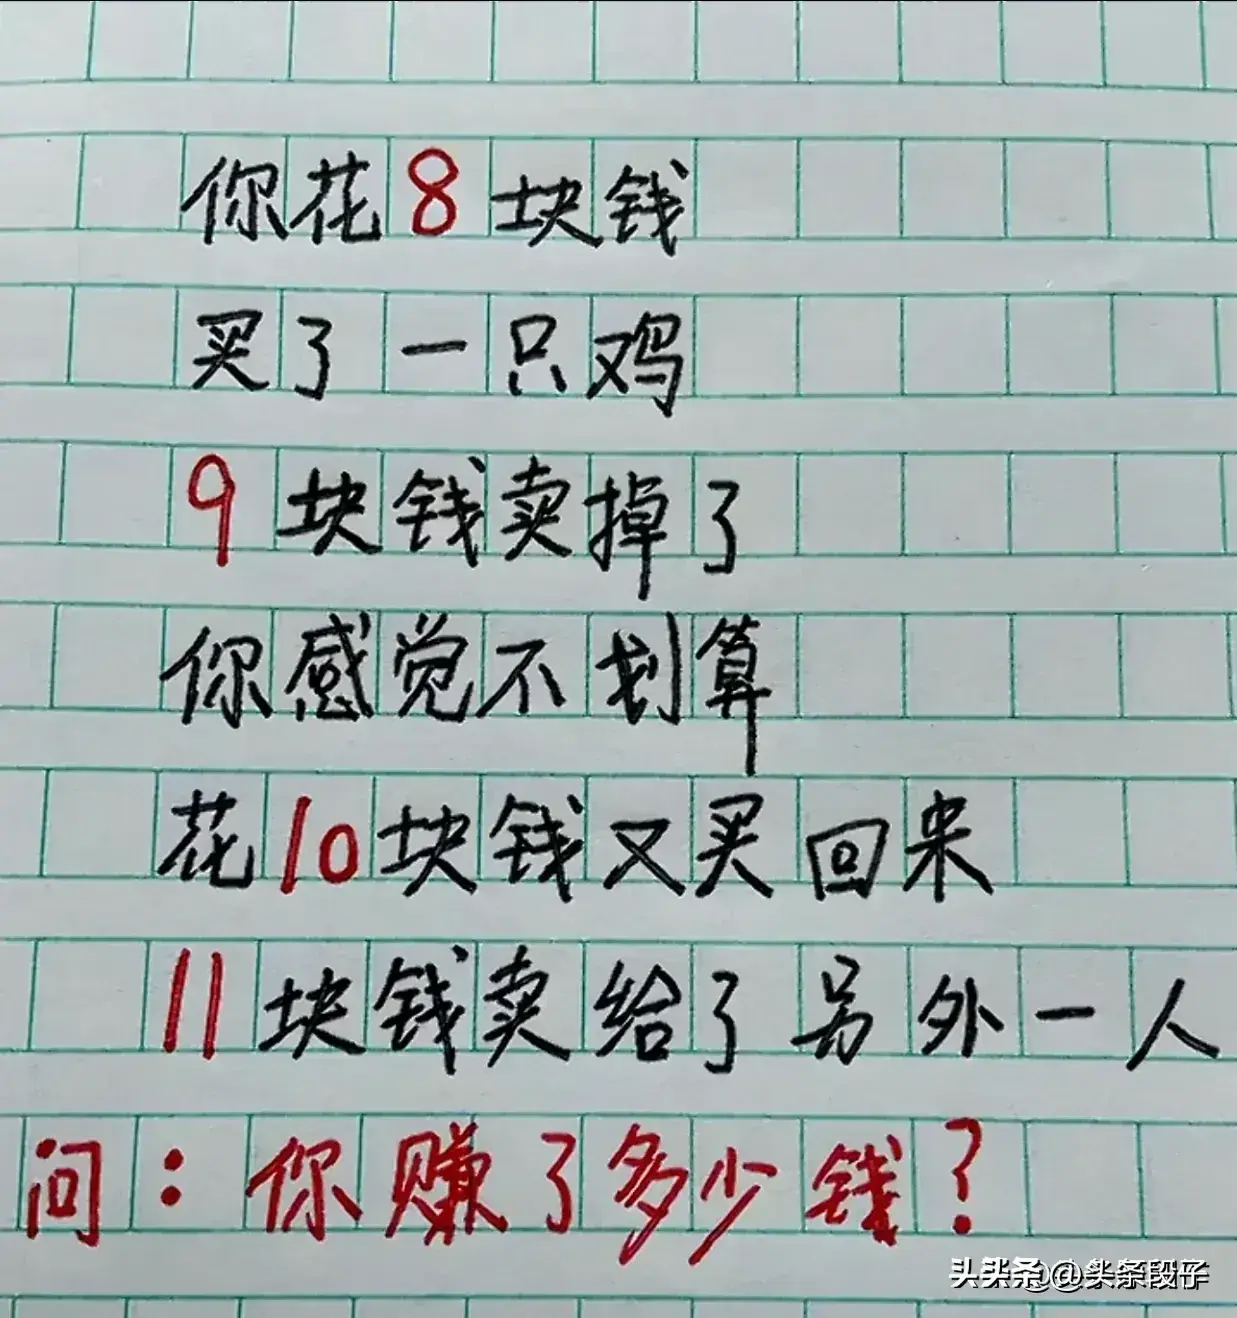 你花8块钱
买了一只鸡
9块钱卖掉了
你感觉不划算
花10块钱又买回来
11块钱卖给了另外一人
问：你赚了多少钱？
头条@头条段子